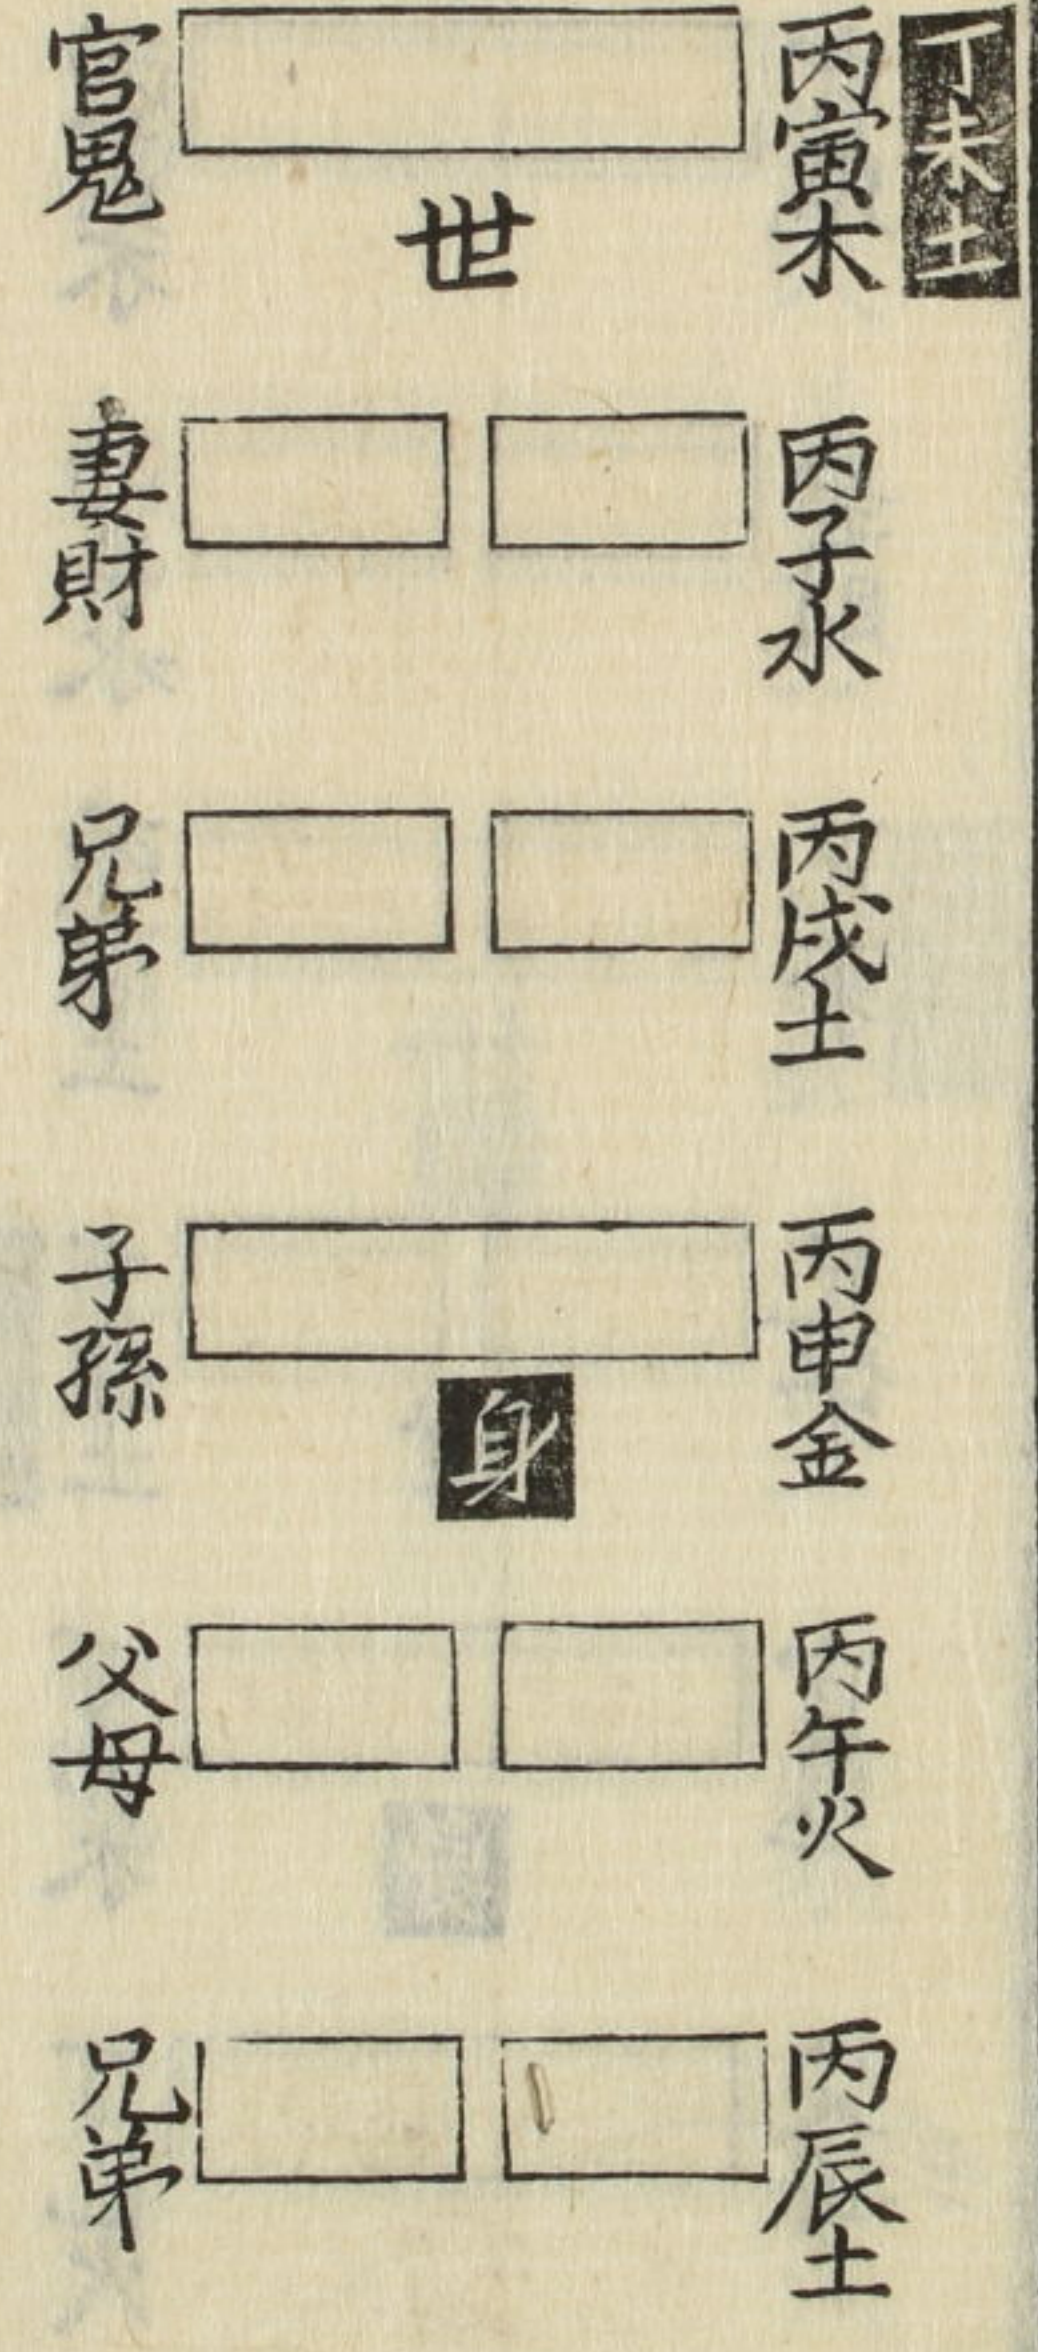 丁未土
丙寅木
世
官鬼
丙子水
妻財
丙戌土
兄弟
丙申金
身
子孫
丙午火
父母
丙辰土
兄弟